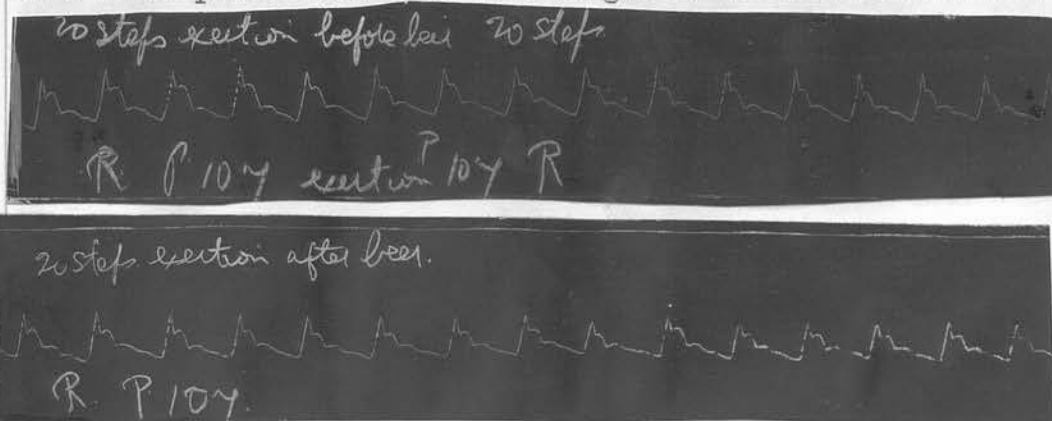 20 steps exertion before beer 20 steps
R P 107 exertion P 107 R
20 steps exertion after beer.
R. P. 107.